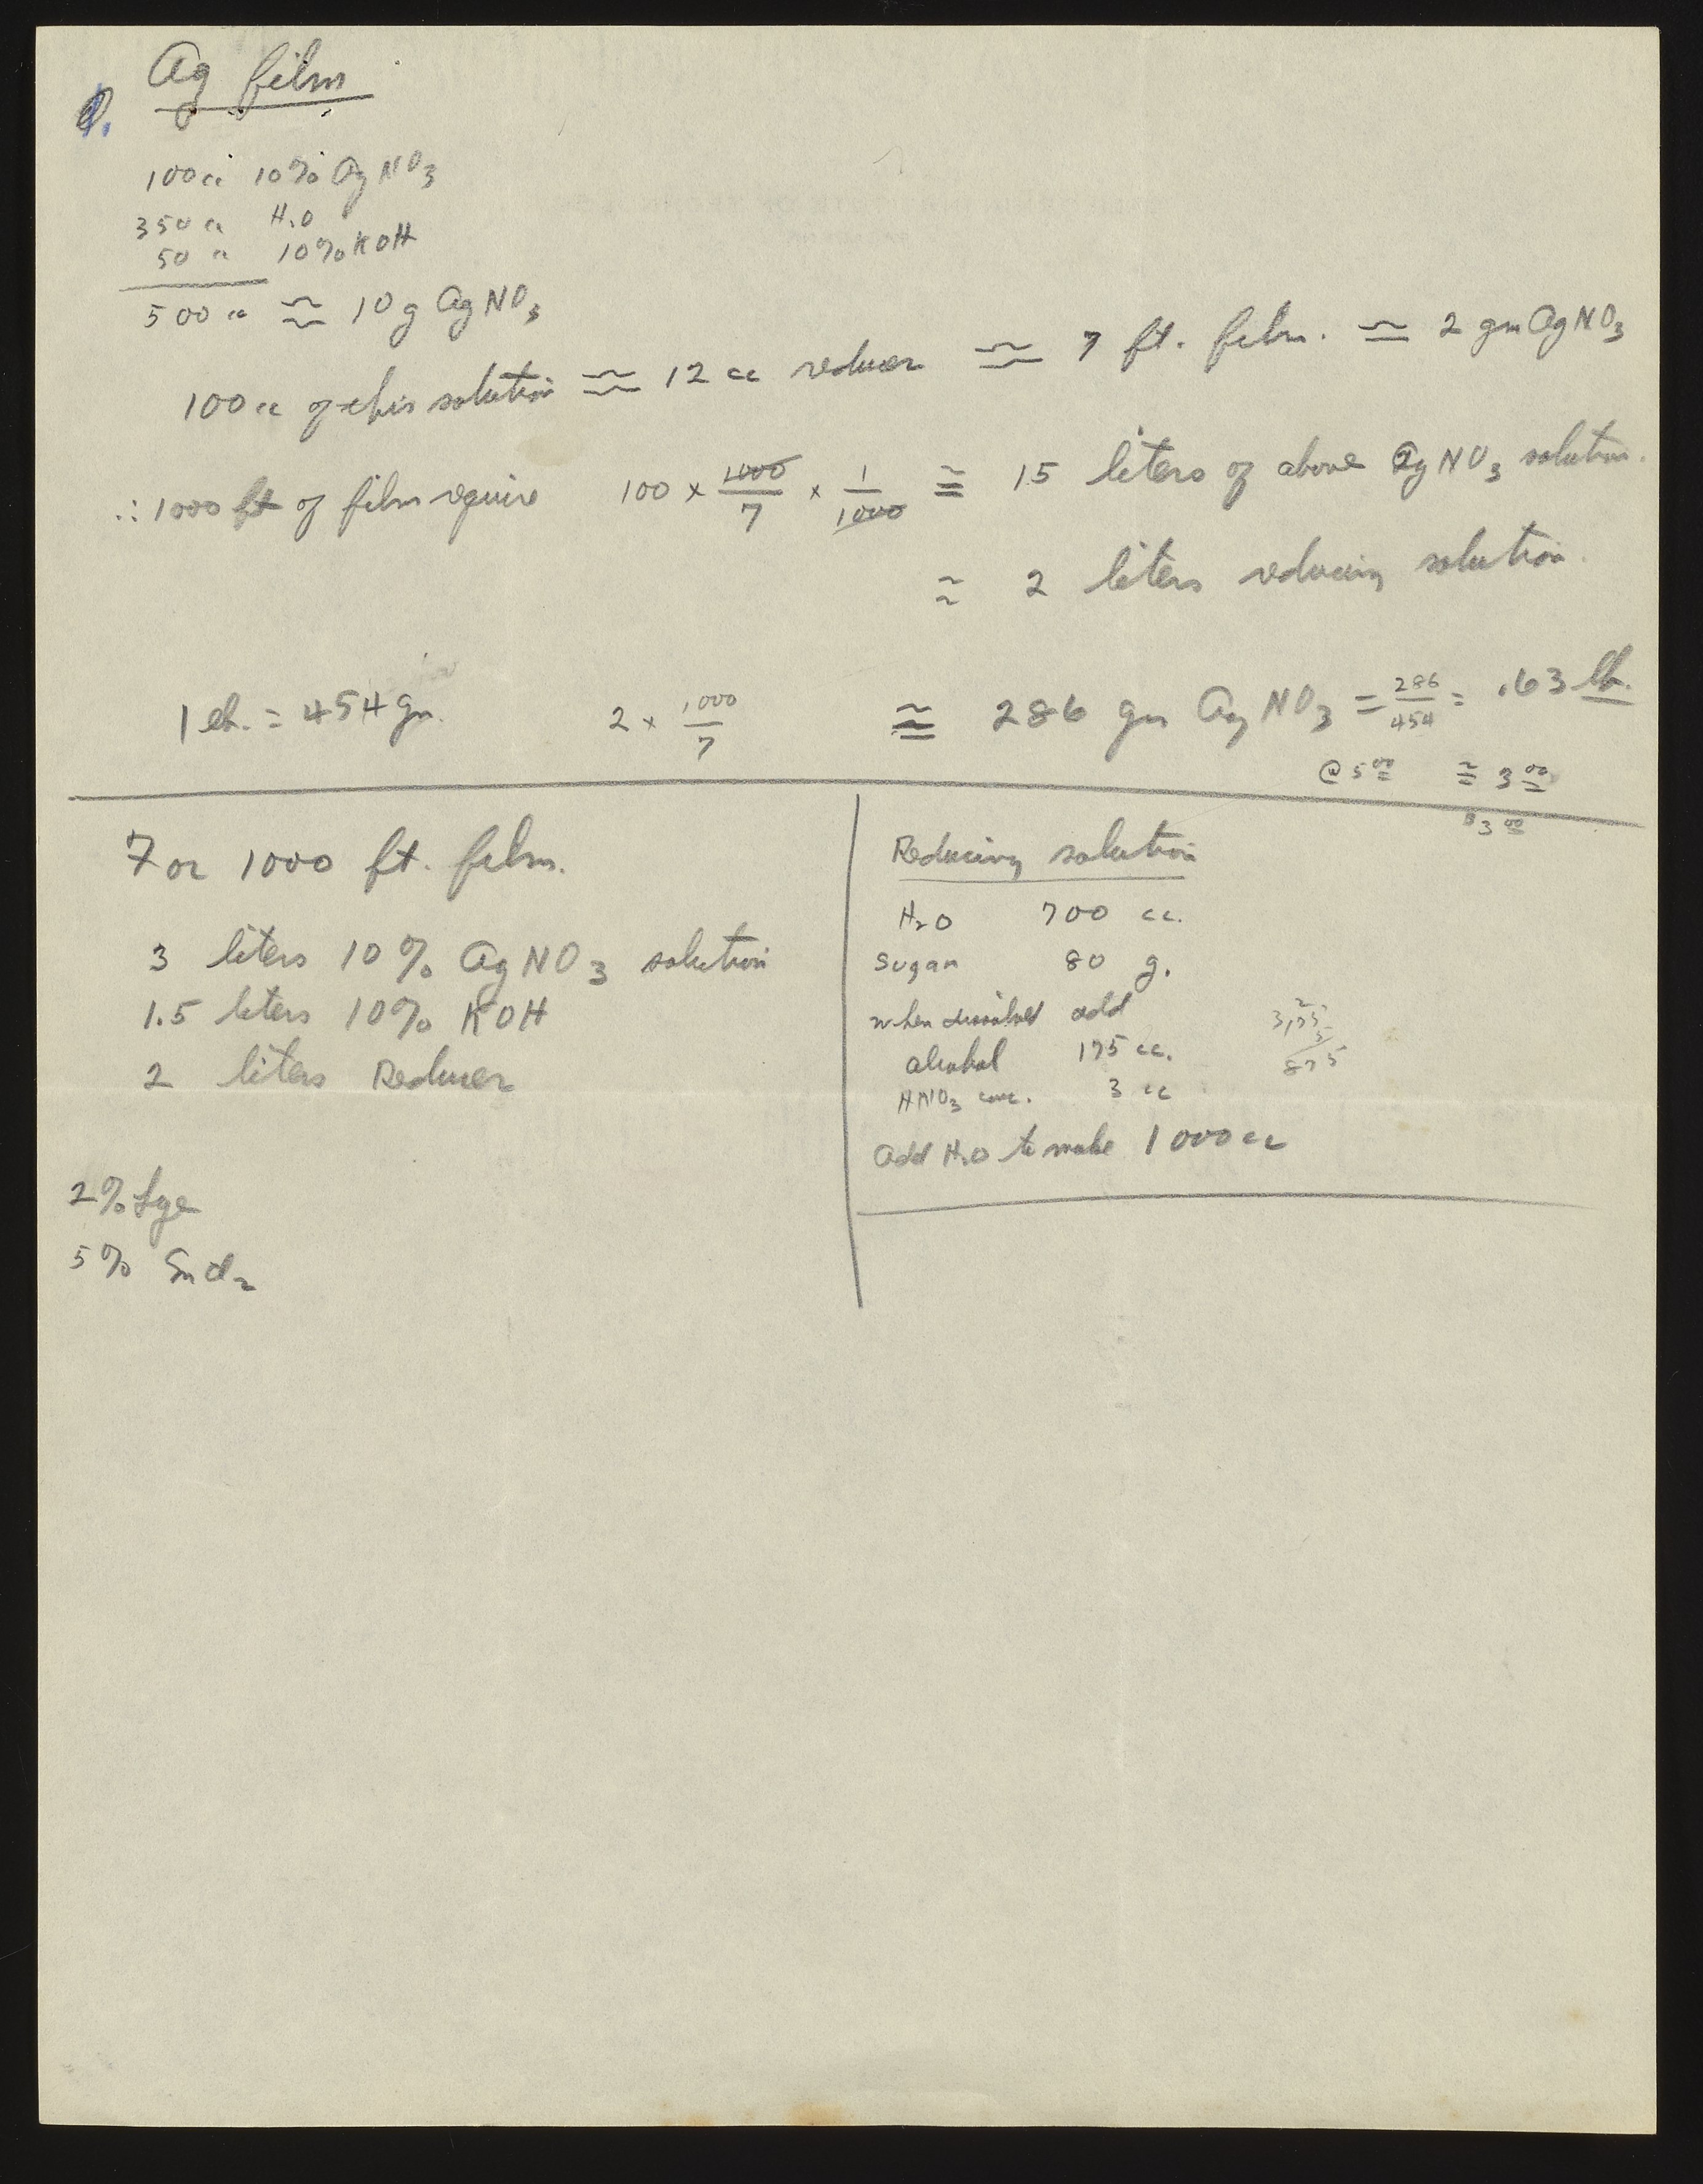 Ag film
100cc 10% AgNO3
350cc H2O
50cc 10% KOH
500cc ≈ 10g AgNO3
100cc of this solution ≈ 12 cc reducer ≈ 7 ft. film. ≈ 2 gm AgNO3
∴ 1000 ft of film require 100 × 1000/7 × 1/1000 ≅ 15 liters of above AgNO3 solution.
≈ 2 liters reducing solution.
1 lb. = 454 gm. 2 × 1000/7 ≅ 286 gm AgNO3 = 286/454 = .63 lb.
@ 5 00 ≅ 3 00
$3 00
For 1000 ft. film.
3 liters 10% AgNO3 solution
1.5 liters 10% KOH
2 liters Reducer
2% Lye
5% SnCl2
Reducing solution
H2O 700 cc.
Sugar 80 g.
when dissolved add
alcohol 175 cc.
HNO3 conc. 3 cc
Add H2O to make 1000cc
875